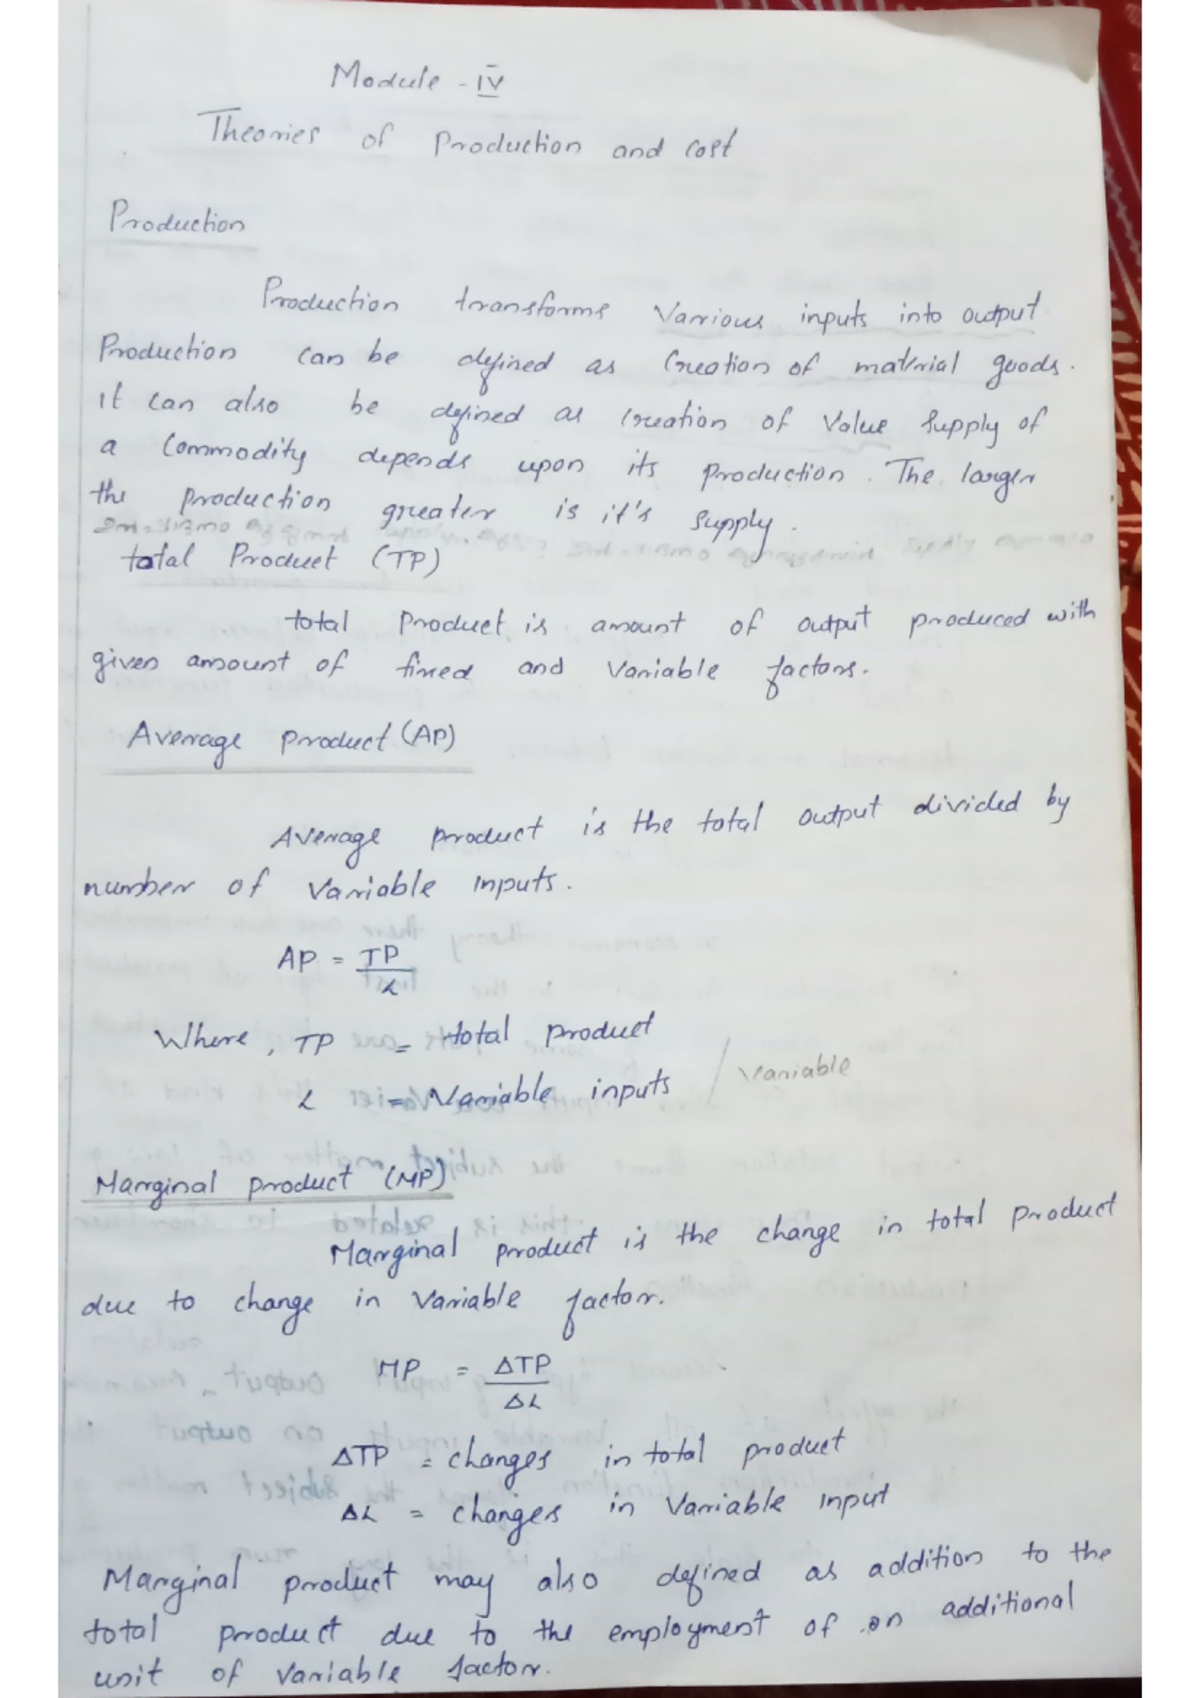 Module - IV
Theories of Production and cost
Production
Production transforms Various inputs into output
Production can be defined as Creation of material goods.
it can also be defined as creation of Value Supply of
a Commodity depends upon its production. The larger
the production greater is it's supply.
total Product (TP)
total Product is amount of output produced with
given amount of fixed and Variable factors.
Average product (AP)
Average product is the total output divided by
number of Variable inputs.
AP = TP
L
Where, TP = total product
L = Variable inputs / Variable
Marginal product (MP)
Marginal product is the change in total product
due to change in Variable factor.
MP = ΔTP
ΔL
ΔTP = changes in total product
ΔL = changes in Variable input
Marginal product may also defined as addition to the
total product due to the employment of an additional
unit of Variable factor.